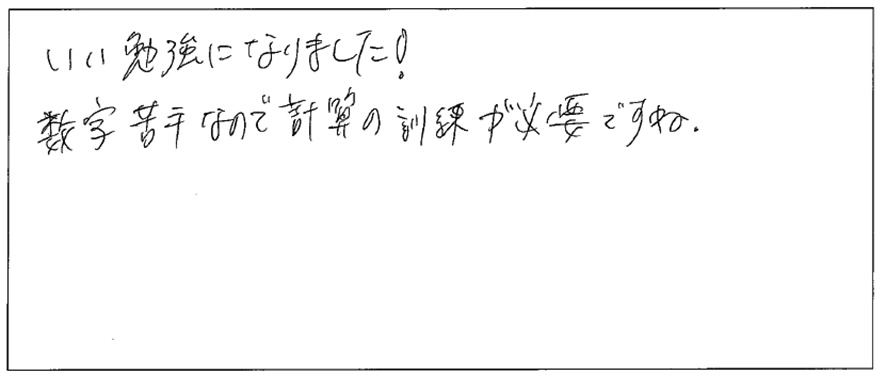 いい勉強になりました!
数字苦手なので計算の訓練が必要ですね.